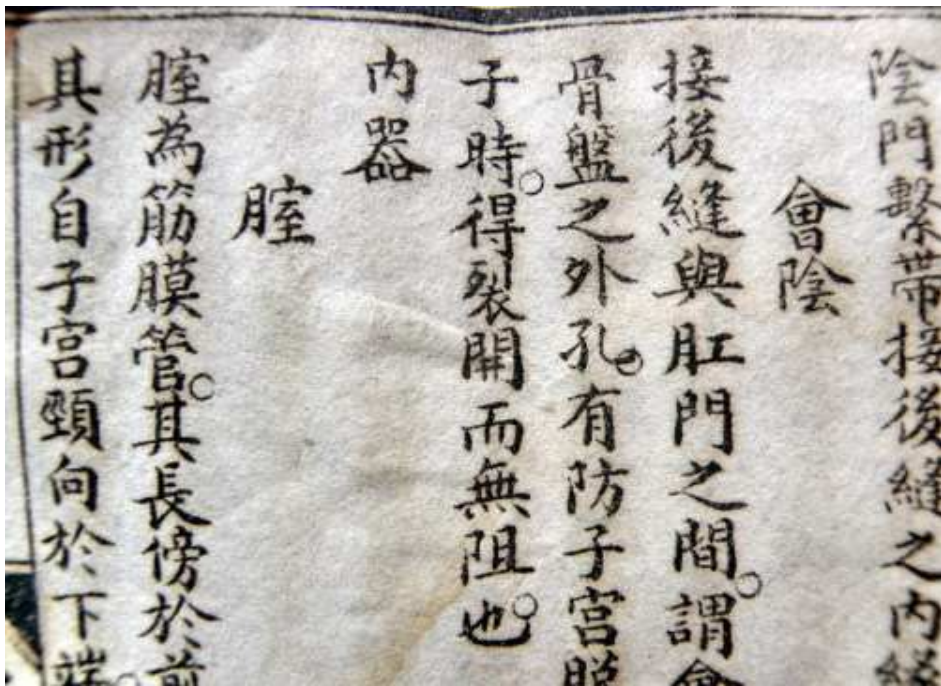 陰門繫帶接後縫之内
會陰
接後縫與肛門之間。謂會
骨盤之外孔。有防子宮脫
子時。得裂開而無阻也。
内器
膣
膣為筋膜管。其長傍於前
其形自子宮頸向於下端。